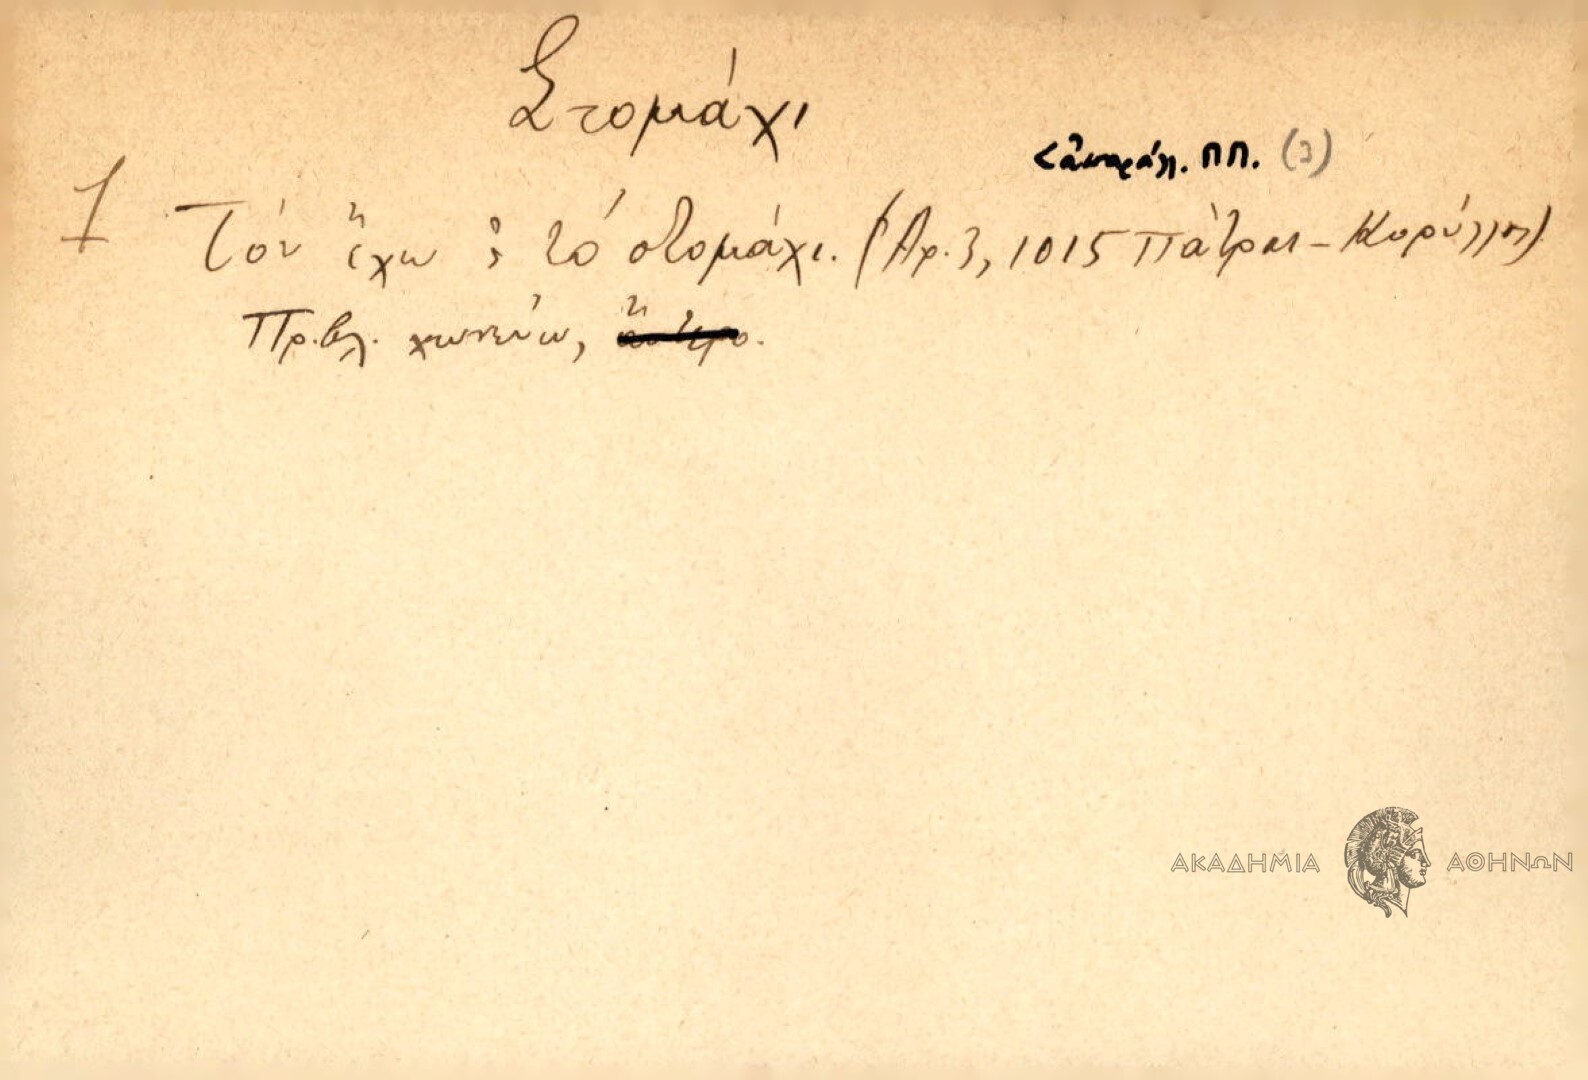 Στομάχι
<ἀπαράλλ. ΠΠ. (3)
1 Τόν ἔχω 'ς τό στομάχι. (Ἀρ. 3, 1015 Πάτραι - Κορύλλος)
Πρβλ. χωνεύω,
ΑΚΑΔΗΜΙΑ ΑΘΗΝΩΝ